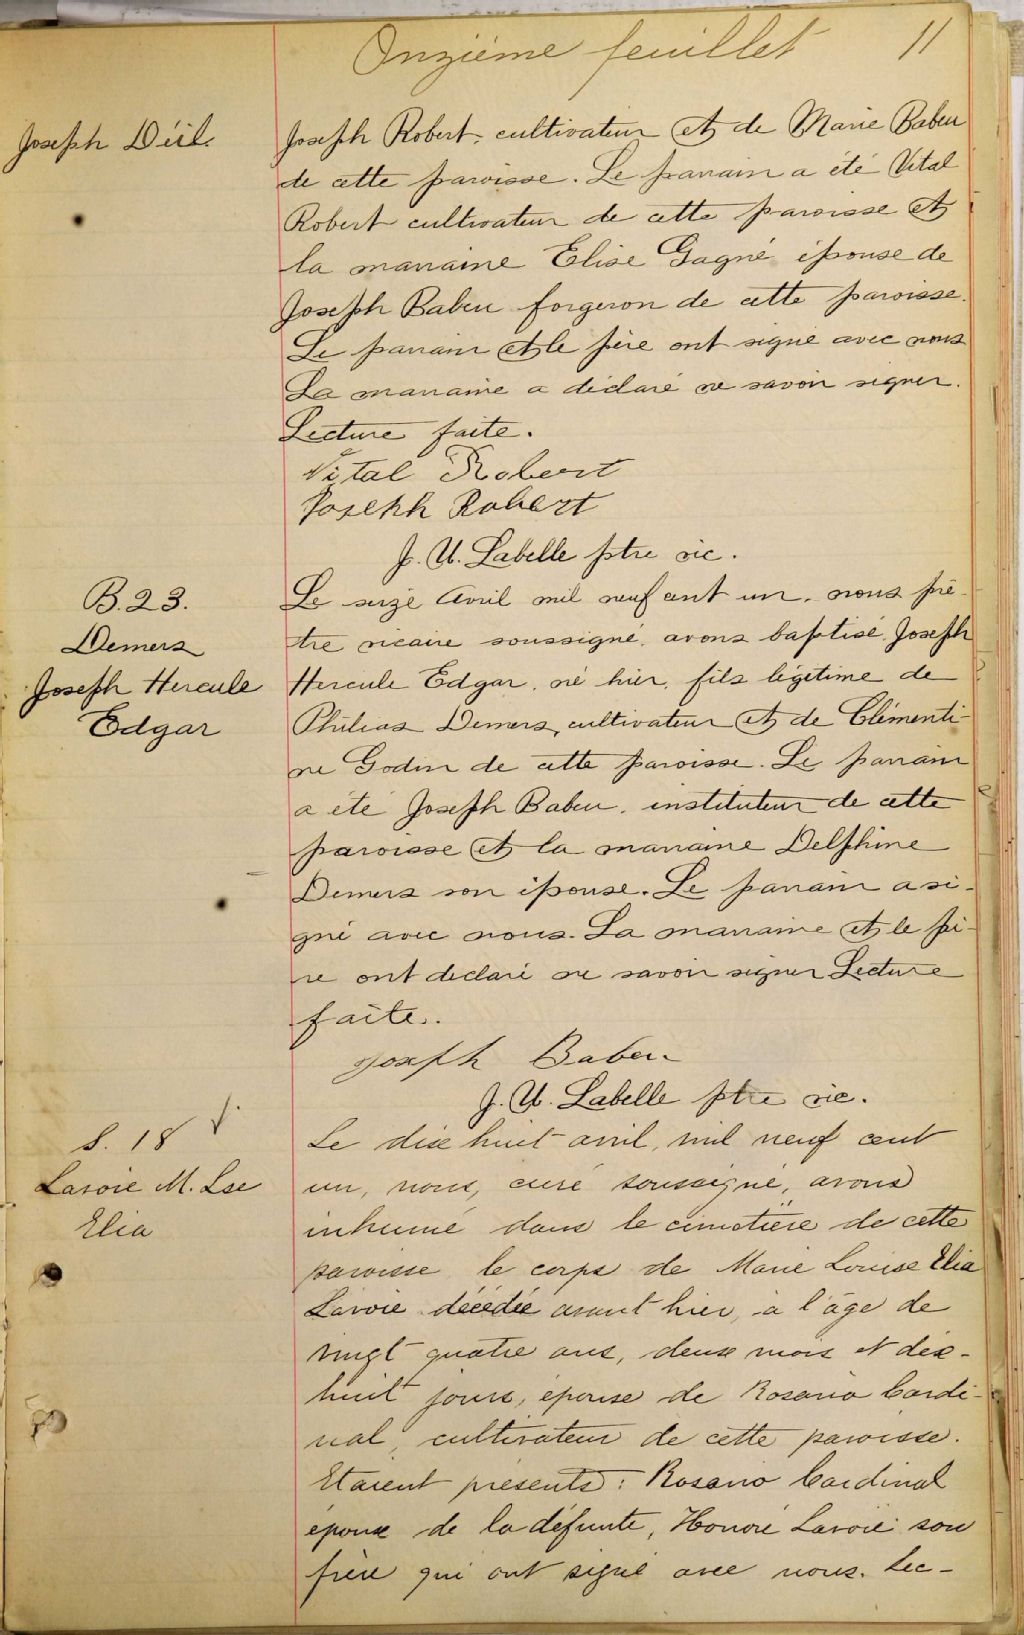 Onzième feuillet 11
Joseph Déil.
Joseph Robert, cultivateur et de Marie Babeu
de cette paroisse. Le parrain a été Vital
Robert cultivateur de cette paroisse et
la marraine Elise Gagné épouse de
Joseph Babeu forgeron de cette paroisse.
Le parrain et le père ont signé avec nous
La marraine a déclaré ne savoir signer.
Lecture faite.
Vital Robert
Joseph Robert
J. U. Labelle ptre vic.
B. 23.
Demers
Joseph Hercule
Edgar
Le seize Avril mil neuf cent un, nous prê-
tre vicaire soussigné avons baptisé Joseph
Hercule Edgar, né hier, fils légitime de
Philias Demers, cultivateur et de Clémenti-
ne Godin de cette paroisse. Le parrain
a été Joseph Babeu, instituteur de cette
paroisse et la marraine Delphine
Demers son épouse. Le parrain a si-
gné avec nous. La marraine et le pè-
re ont declaré ne savoir signer Lecture
faite.
Joseph Babeu
J. U. Labelle ptre vic.
S. 18
Lavoie M. Lse
Elia
Le dix huit avril, mil neuf cent
un, nous, curé soussigné, avons
inhumé dans le cimetière de cette
paroisse le corps de Marie Louise Elia
Lavoie décédée avant hier, à l'âge de
vingt quatre ans, deux mois et dix-
huit jours, épouse de Rosario Cardi-
nal, cultivateur de cette paroisse.
Etaient présents: Rosario Cardinal
époux de la défunte, Honoré Lavoie son
frère qui ont signé avec nous. Lec-